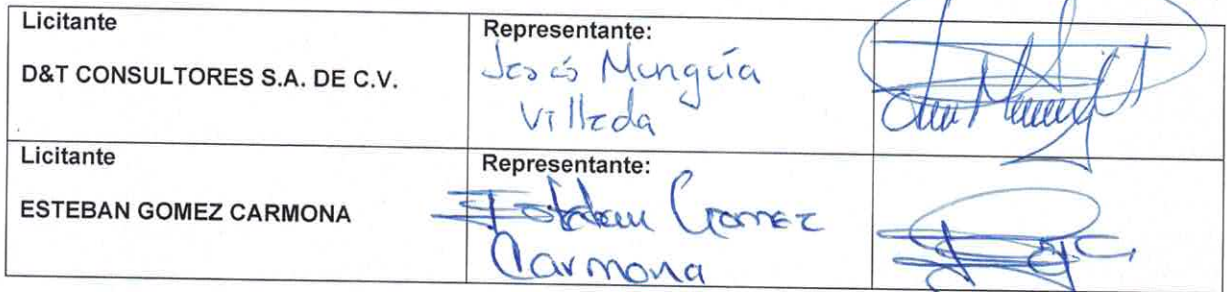 Licitante
D&T CONSULTORES S.A. DE C.V.
Representante:
Jesús Munguía
Villeda
Licitante
ESTEBAN GOMEZ CARMONA
Representante:
Esteban Gomez
Carmona